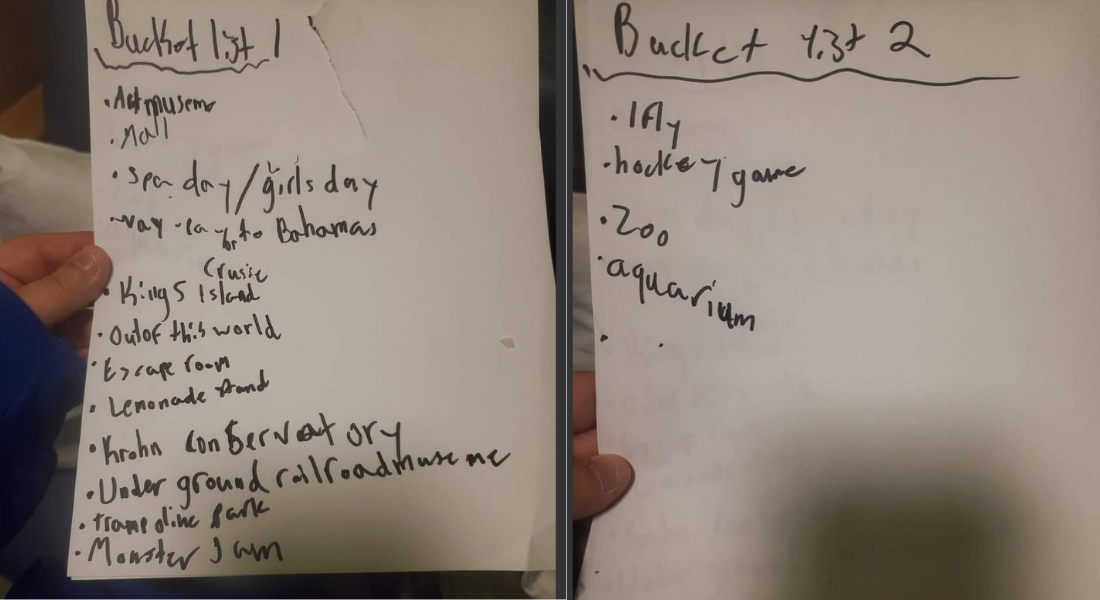 Bucket list 1
• Art museme
• Mall
• Spa day/girls day
to Bahamas
Crusie
• Kings Island
• Out of this world
• Escape room
• Lemonade stand
• Krohn conservatory
• Under ground railroad museme
• trampoline park
• Monster Jam
Bucket list 2
• Ifly
• hockey game
• Zoo
• aquarium